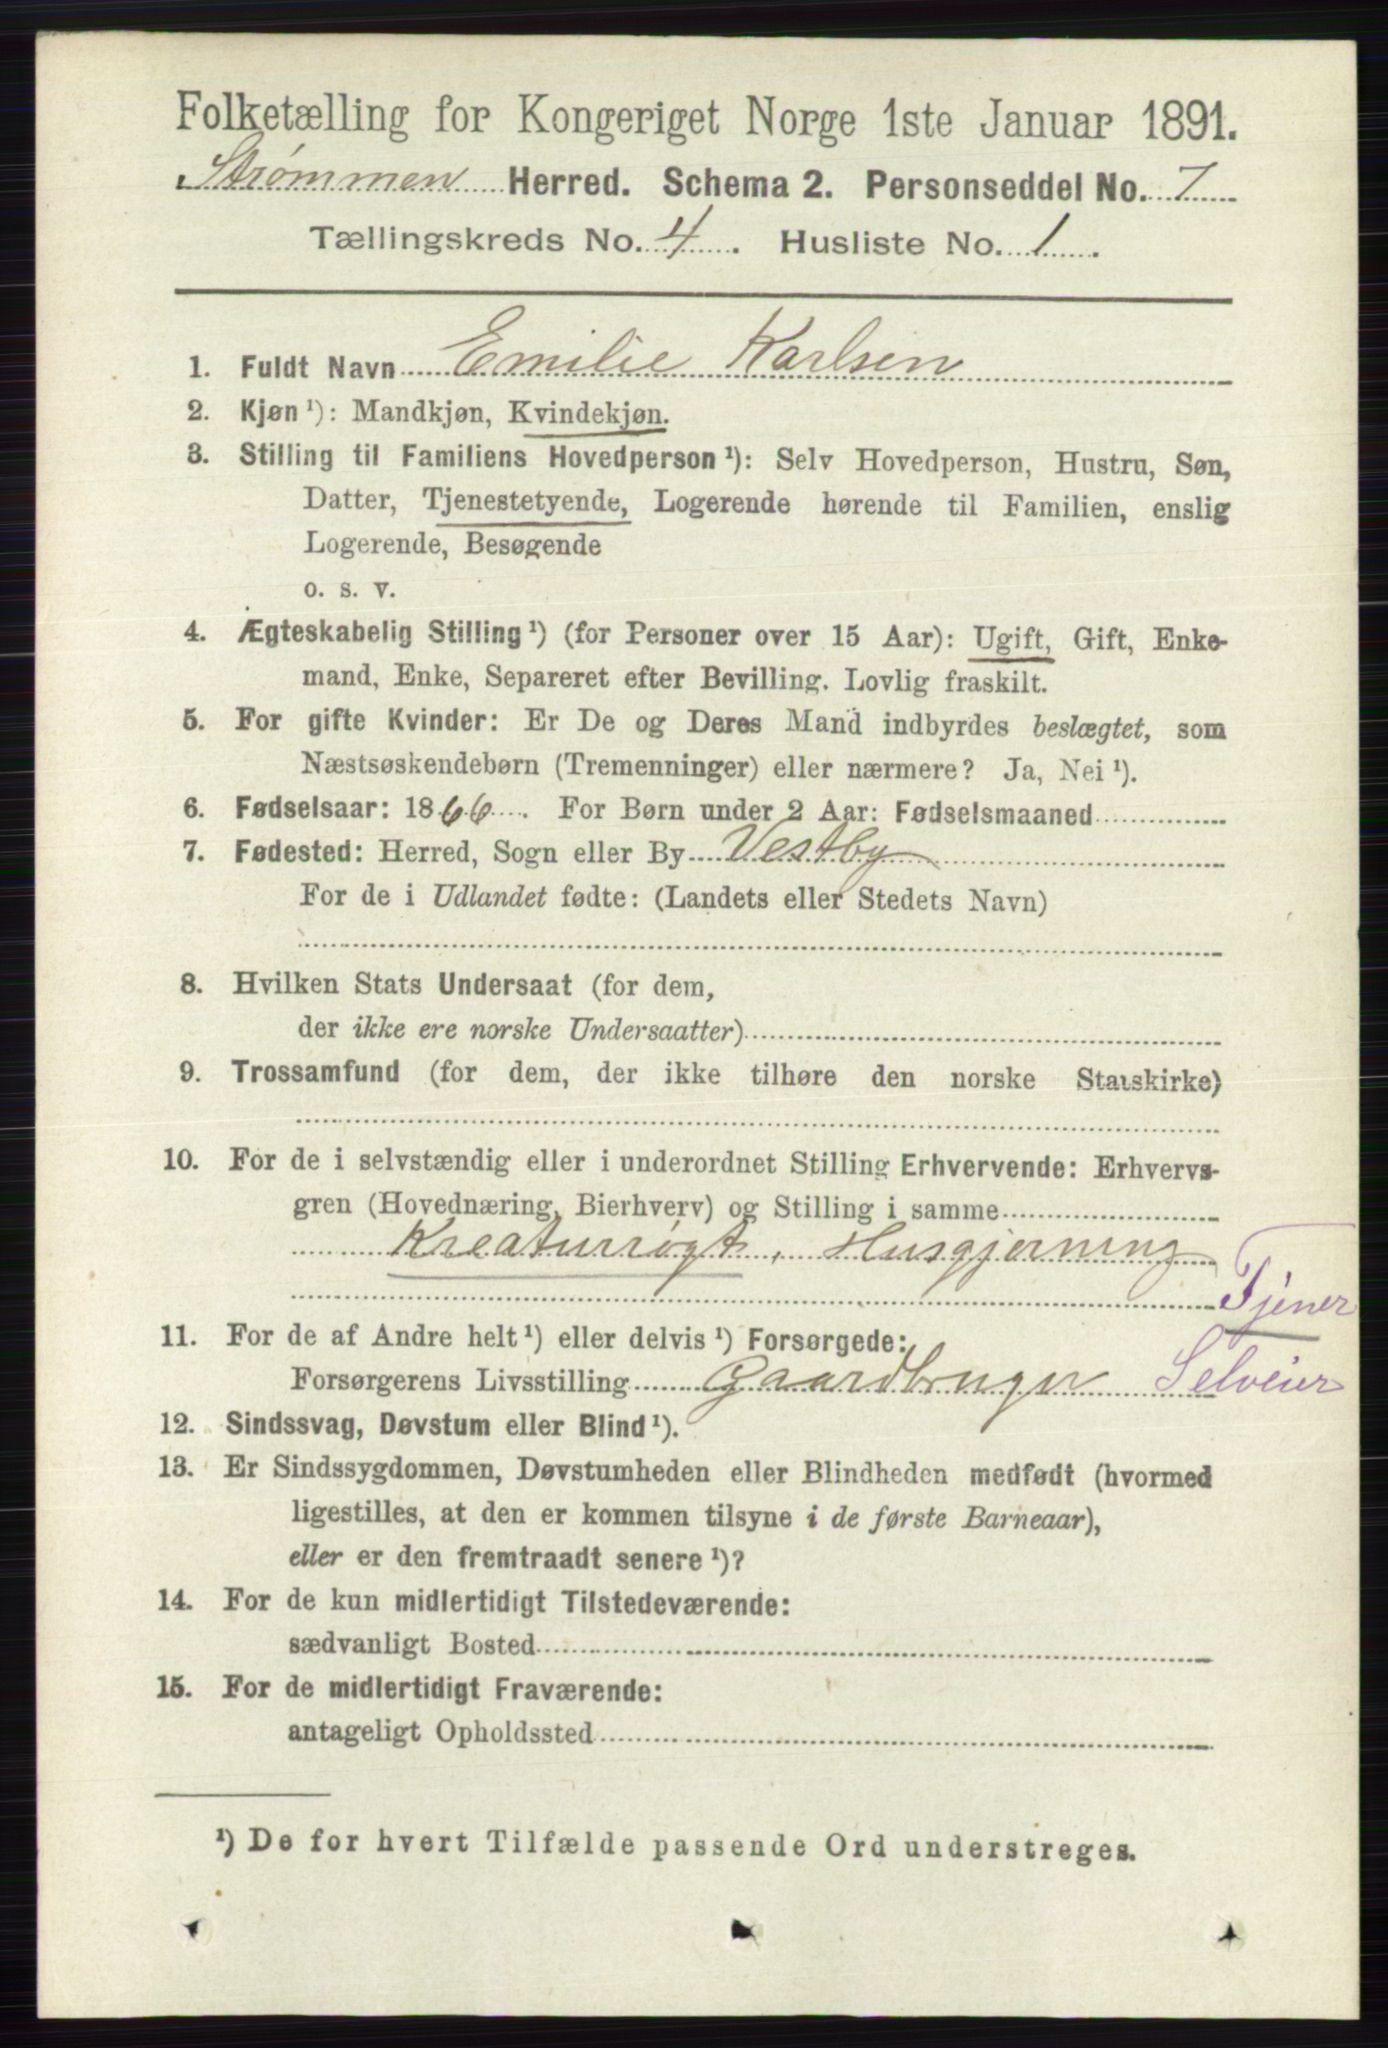 Folketælling for Kongeriget Norge 1ste Januar 1891.
Strømmen Herred. Schema 2. Personseddel No. 7
Tællingskreds No. 4. Husliste No. 1.
1. Fuldt Navn Emilie Karlsen
2. Kjøn ¹): Mandkjøn, Kvindekjøn.
3. Stilling til Familiens Hovedperson ¹): Selv Hovedperson, Hustru, Søn,
Datter, Tjenestetyende, Logerende hørende til Familien, enslig
Logerende, Besøgende
o. s. v.
4. Ægteskabelig Stilling ¹) (for Personer over 15 Aar): Ugift, Gift, Enke-
mand, Enke, Separeret efter Bevilling. Lovlig fraskilt.
5. For gifte Kvinder: Er De og Deres Mand indbyrdes beslægtet, som
Næstsøskendebørn (Tremenninger) eller nærmere? Ja, Nei ¹).
6. Fødselsaar: 1866. For Børn under 2 Aar: Fødselsmaaned
7. Fødested: Herred, Sogn eller By Vestby
For de i Udlandet fødte: (Landets eller Stedets Navn)
8. Hvilken Stats Undersaat (for dem,
der ikke ere norske Undersaatter)
9. Trossamfund (for dem, der ikke tilhøre den norske Statskirke)
10. For de i selvstændig eller i underordnet Stilling Erhvervende: Erhvervs-
gren (Hovednæring, Bierhverv) og Stilling i samme
Kreaturrøgt, Husgjerning
Tjener
11. For de af Andre helt ¹) eller delvis ¹) Forsørgede:
Forsørgerens Livsstilling Gaardbruger Selveier
12. Sindssvag, Døvstum eller Blind ¹).
13. Er Sindssygdommen, Døvstumheden eller Blindheden medfødt (hvormed
ligestilles, at den er kommen tilsyne i de første Barneaar),
eller er den fremtraadt senere ¹)?
14. For de kun midlertidigt Tilstedeværende:
sædvanligt Bosted
15. For de midlertidigt Fraværende:
antageligt Opholdssted
¹) De for hvert Tilfælde passende Ord understreges.